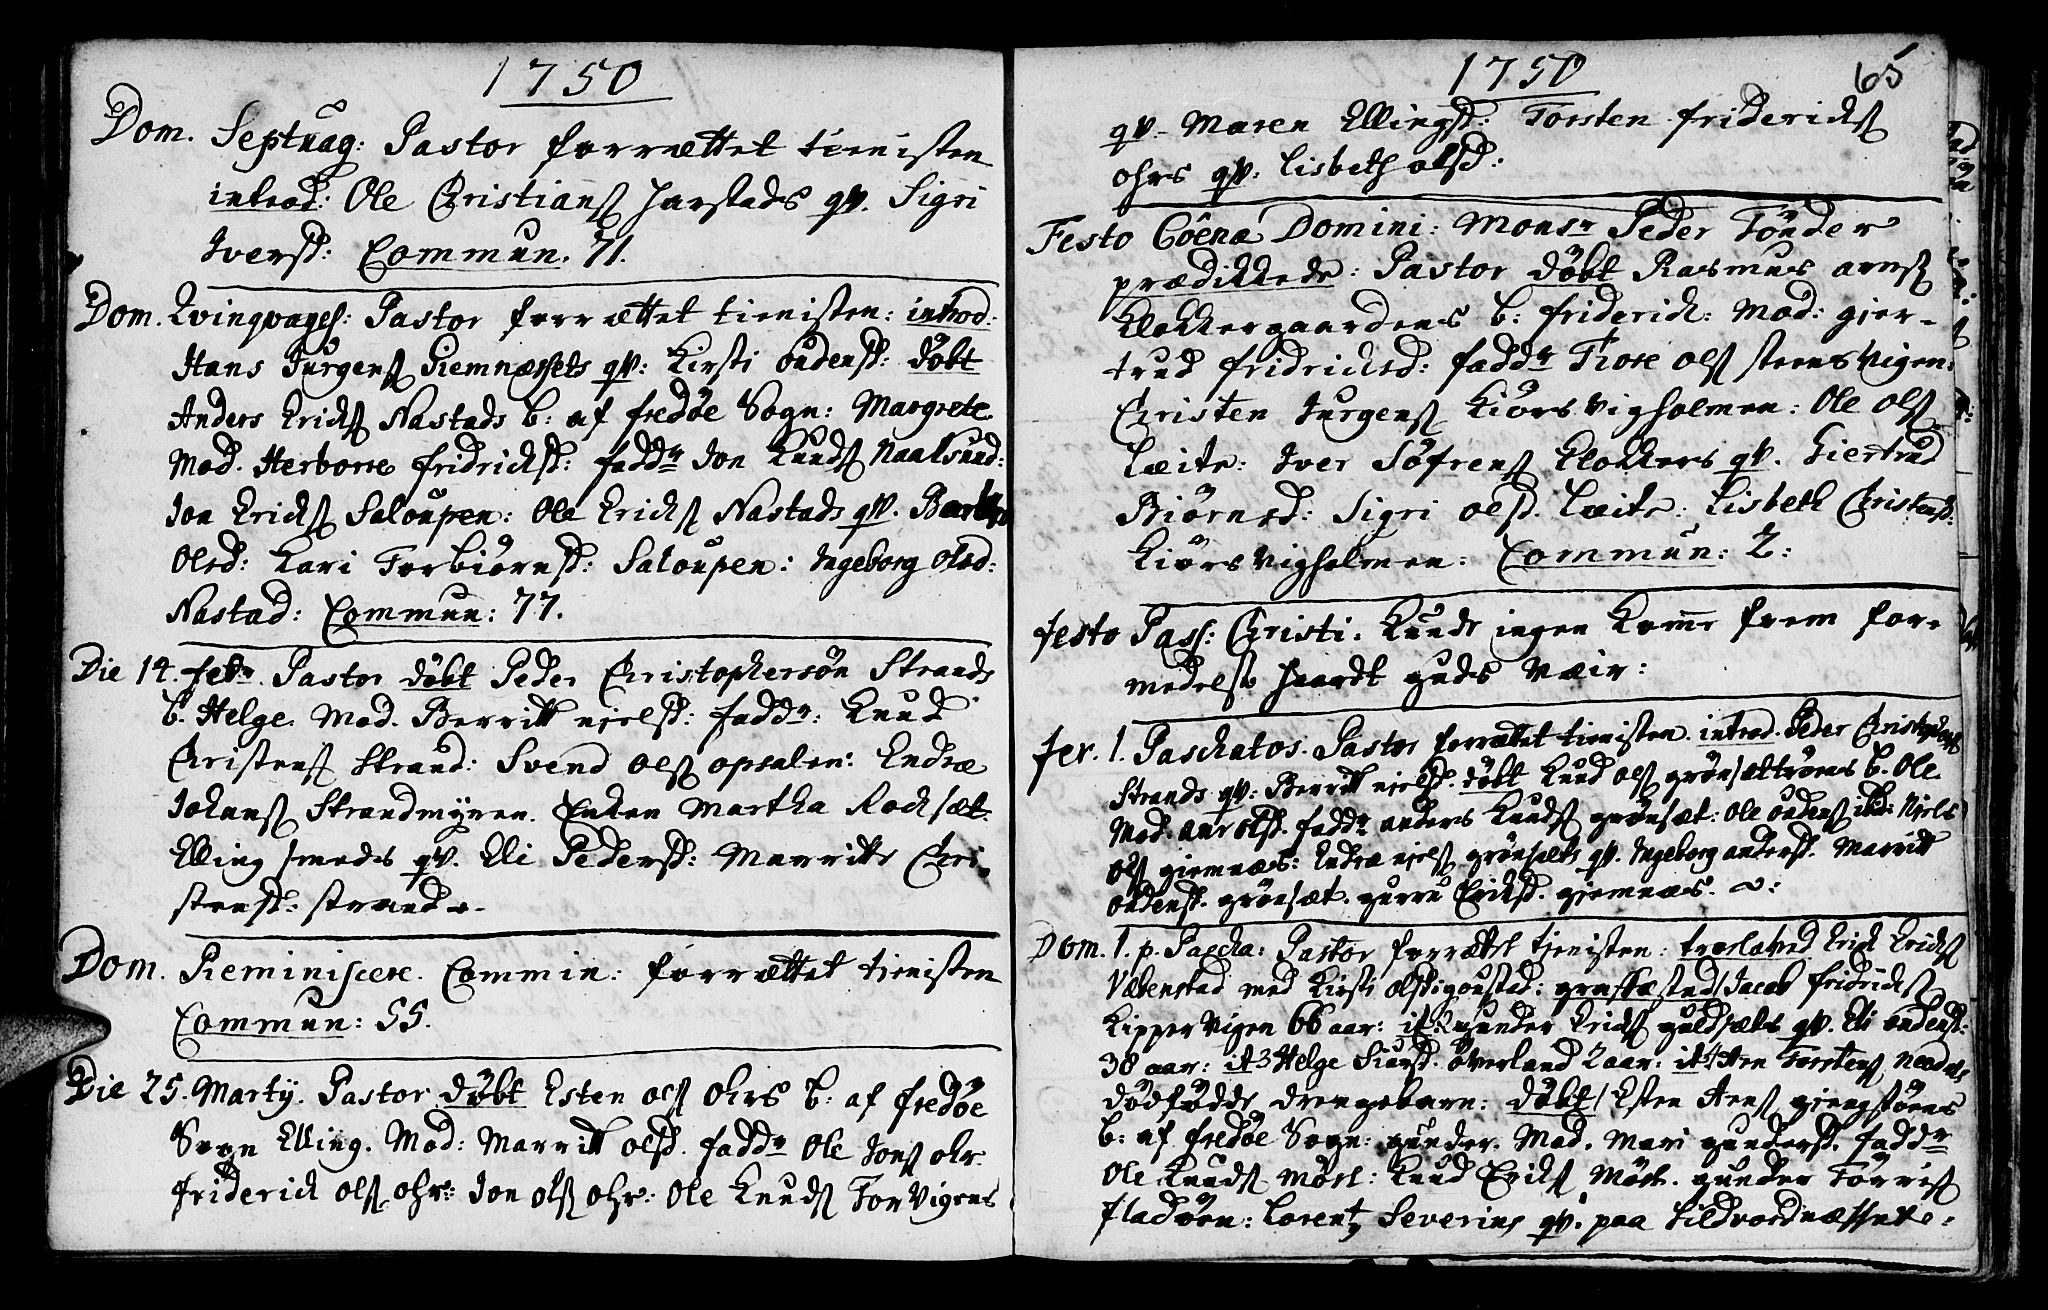 1750
Dom. Septuag: Pastor forrættet tienisten
introd: Ole Christians Harstads qv. Sigri
Iversd: Commun. 71.
Dom. Qvinqvages: Pastor forrættet tienisten: introd:
Hans Jurgens Remnæssets qv: Kirsti oudensd: døbt
Anders Ericks Nastads b: af fredøe Sogn: Margrete
Mod. Herborre fridricksd: faddr Jon Knuds Naalsund:
Jon Ericks Saloupen: Ole Ericks Nastads qv.
Olsd: Kari Torbiørnsd: Saloupen: Ingeborg olsd:
Nastad: Commun: 77.
Die 14. febr. Pastor døbt Peder Christophersøn Strands
b. Helge. Mod. Berritt nielsd: faddr: Knud
Christens Strand: Svend ols opsalen: Endræ
Johans Strandmyren. Enken Martha Rochsæt.
Elling smeds qv. Eli Pedersd: Marritte Chri
stensd: strand
Dom. Reminiscere. Commin: forrættet tienisten
Commun: 55.
Die 25. Martij. Pastor døbt Esten ols ohrs b: af fredøe
Sogn Elling. Mod: Marritt olsd. faddr Ole Jons ohr.
friderich ols ohr: Jon ols ohr: Ole Knuds Torvigens
1750 65
qv. Maren Ellingsd: Torsten fridericks
ohrs qv: Lisbeth olsd:
Festo Coena Domini: Monsr Peder Tønder
prædikkede: Pastor døbt Rasmus arns
Klokkergaardens b: friderich: Mod: gier-
trud fridrichsd: faddr Tore ols steensvigen:
Christen Jurgens Kiørsvigholmen: Ole ols
Leite: Iver Søfrens Klokkers qv. giertrud
Biørnsd: Sigri olsd. Leite: Lisbeth Christensd:
Kiørsvigholmen: Commun: 2:
Festo Pass: Christi. Kunde ingen komme frem for-
medelst haardt guds Væir:
fer. 1. Paschatos. Pastor forrættet tienisten. introd. Peder Christophers
Strands qv: Berritt nielsd. døbt Knud ols grønsættrøens b. Ole
Mod. anne olsd. faddr anders Knuds grønsæt: Ole oudens ibd: Niels
ols giemnæs: Endræ niels grønsæts qv. Ingeborg andersd. Marritt
oudensd. grønsæt. gurru Ericksd. giemnæs.
Dom. 1. p. Pascha: Pastor forrættet tienisten: trolovet Erich Ericks
Vatenstad med Kirsti olsd: goustad: græsfæstad/ Jacob fridricks
Kippervigen 66 aar: it 2 gunder Ericks guldsæts qv. Eli oudensd:
38 aar: it 3 Helge Siursd. Överland 2 aar: it 4 Hen Torstens Neadals
dödfødde drengebarn: døbt/ Esten Hens giengstøens
b: af fredøe Sogn: gunder. Mod. Mari gundersd. faddr
Ole Knuds Möst: Knud Ericks Möst. gunder Törris
fladöen: Lorentz Severins qv. paa Sildvordnæssete: